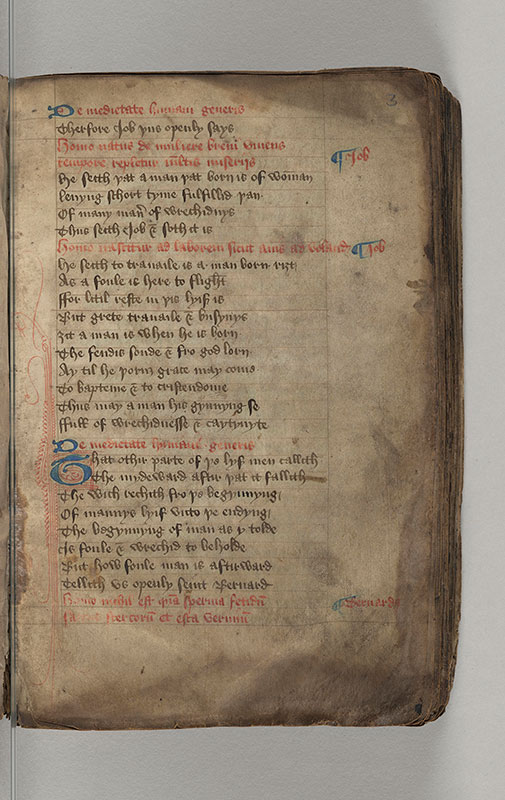 De medietate humani generis
Therfore Job þus openly says
Homo natus de muliere breui viuens
tempore repletur multis miserijs
¶ Job
He seith þat a man þat born is of woman
leuyng schort tyme fulfillid þan
Of many maner of wrechidnys
Thus seith Job & soth it is
Homo nascitur ad laborem sicut auis ad volandum
¶ Job
He seith to trauaile is a man born riȝt
As a foule is here to flight
ffor litil reste in þis lyif is
But grete trauaile & busynys
ȝit a man is when he is born
The fendis sonde & fro god lorn
Ay til he þorow grace may come
To bapteme & to cristendome
Thus may a man his gynnyng se
ffull of wrechidnesse & caytyuyte
De medietate humani generis
That othir parte of þe lyf men callith
The mydeward aftir þat it fallith
The wich rechith fro þe begynnyng
Of mannys lyif vnto þe endyng
The begynnyng of man as y tolde
Is foule & wrechid to beholde
But how foule man is aftirward
Tellith vs openly seint Bernard
Homo nichil est sperma fetidum
¶ Bernardus
stercorum et esca vermium